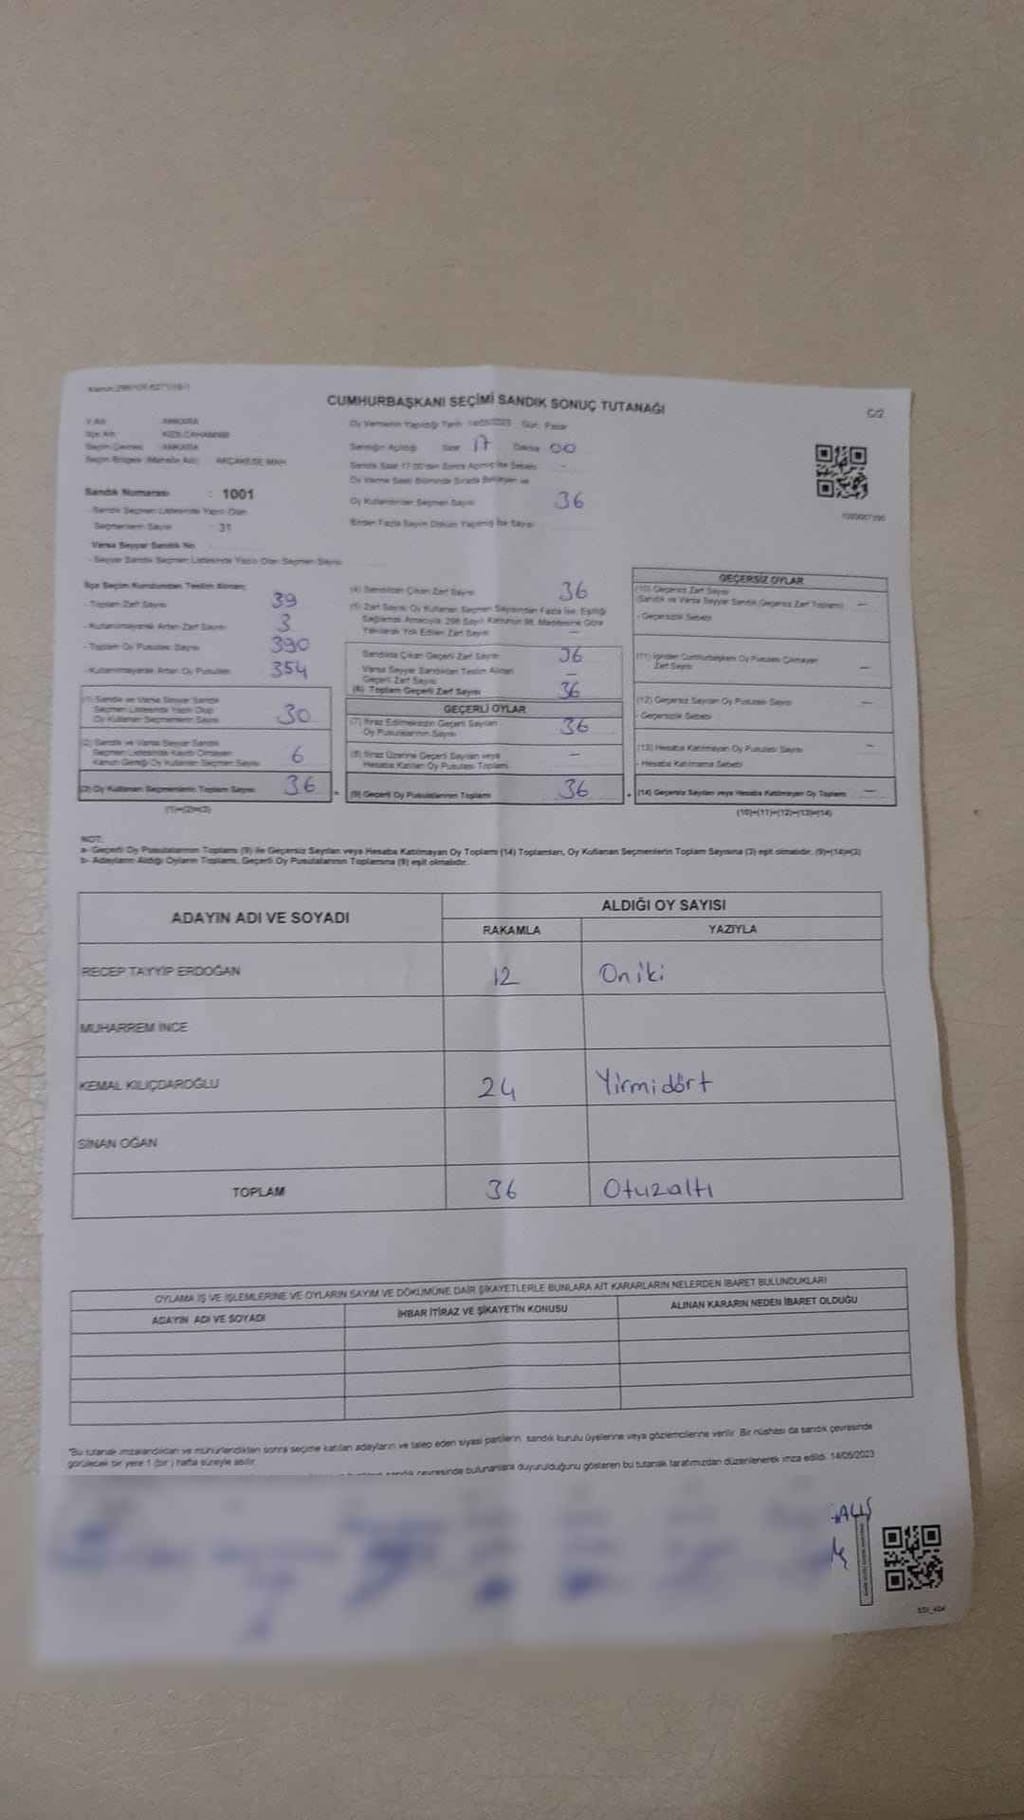 CUMHURBAŞKANI SEÇİMİ SANDIK SONUÇ TUTANAĞI
C/2
İl Adı ANKARA
İlçe Adı KIZILCAHAMAM
Seçim Çevresi ANKARA
Oy Vermenin Yapıldığı Tarih 14/05/2023 Gün Pazar
Sandığın Açıldığı Saat 17 Dakika 00
Sandık Numarası : 1001
Oy Kullandırılan Seçmen Sayısı 36
Sandık Seçmen Listesinde Yazılı Olan
Seçmenlerin Sayısı : 31
Varsa Seyyar Sandık No
- Seyyar Sandık Seçmen Listesinde Yazılı Olan Seçmen Sayısı
İlçe Seçim Kurulundan Teslim Alınan;
- Toplam Zarf Sayısı 39
- Kullanılmayarak Artan Zarf Sayısı 3
- Toplam Oy Pusulası Sayısı 390
- Kullanılmayarak Artan Oy Pusulası 354
(1) Sandık ve Varsa Seyyar Sandık
Seçmen Listesinde Yazılı Olup
Oy Kullanan Seçmenlerin Sayısı 30
(2) Sandık ve Varsa Seyyar Sandık
Seçmen Listesinde Kayıtlı Olmayan
Kanun Gereği Oy Kullanan Seçmen Sayısı 6
(3) Oy Kullanan Seçmenlerin Toplam Sayısı 36
(1)+(2)=(3)
(4) Sandıktan Çıkan Zarf Sayısı 36
(5) Zarf Sayısı Oy Kullanan Seçmen Sayısından Fazla İse, Eşitliği
Sağlamak Amacıyla 298 Sayılı Kanunun 98. Maddesine Göre
Yakılarak Yok Edilen Zarf Sayısı –
Sandıkta Çıkan Geçerli Zarf Sayısı 36
Varsa Seyyar Sandıktan Teslim Alınan
Geçerli Zarf Sayısı –
(6) Toplam Geçerli Zarf Sayısı 36
GEÇERLİ OYLAR
(7) İtiraz Edilmeksizin Geçerli Sayılan
Oy Pusulalarının Sayısı 36
(8) İtiraz Üzerine Geçerli Sayılan veya
Hesaba Katılan Oy Pusulası Toplamı –
(9) Geçerli Oy Pusulalarının Toplamı 36
GEÇERSİZ OYLAR
(10) Geçersiz Zarf Sayısı
(Sandık ve Varsa Seyyar Sandık Geçersiz Zarf Toplamı) –
- Geçersizlik Sebebi
(11) İçinden Cumhurbaşkanı Oy Pusulası Çıkmayan
Zarf Sayısı –
(12) Geçersiz Sayılan Oy Pusulası Sayısı –
- Geçersizlik Sebebi
(13) Hesaba Katılmayan Oy Pusulası Sayısı –
- Hesaba Katılmama Sebebi
(14) Geçersiz Sayılan veya Hesaba Katılmayan Oy Toplamı –
(10)+(11)+(12)+(13)=(14)
NOT:
a- Geçerli Oy Pusulalarının Toplamı (9) ile Geçersiz Sayılan veya Hesaba Katılmayan Oy Toplamı (14) Toplamları, Oy Kullanan Seçmenlerin Toplam Sayısına (3) eşit olmalıdır. (9)+(14)=(3)
b- Adayların Aldığı Oyların Toplamı, Geçerli Oy Pusulalarının Toplamına (9) eşit olmalıdır.
ADAYIN ADI VE SOYADI
ALDIĞI OY SAYISI
RAKAMLA YAZIYLA
RECEP TAYYİP ERDOĞAN 12 Oniki
MUHARREM İNCE
KEMAL KILIÇDAROĞLU 24 Yirmidört
SİNAN OĞAN
TOPLAM 36 Otuzaltı
OYLAMA İŞ VE İŞLEMLERİNE VE OYLARIN SAYIM VE DÖKÜMÜNE DAİR ŞİKAYETLERLE BUNLARA AİT KARARLARIN NELERDEN İBARET BULUNDUKLARI
ADAYIN ADI VE SOYADI İHBAR İTİRAZ VE ŞİKAYETİN KONUSU ALINAN KARARIN NEDEN İBARET OLDUĞU
"Bu tutanak imzalandıktan ve mühürlendikten sonra seçime katılan adayların ve talep eden siyasi partilerin, sandık kurulu üyelerine veya gözlemcilerine verilir. Bir nüshası da sandık çevresinde
görülecek bir yere 1 (bir) hafta süreyle asılır.
sandık çevresinde bulunanlara duyurulduğunu gösteren bu tutanak tarafımızdan düzenlenerek imza edildi. 14/05/2023